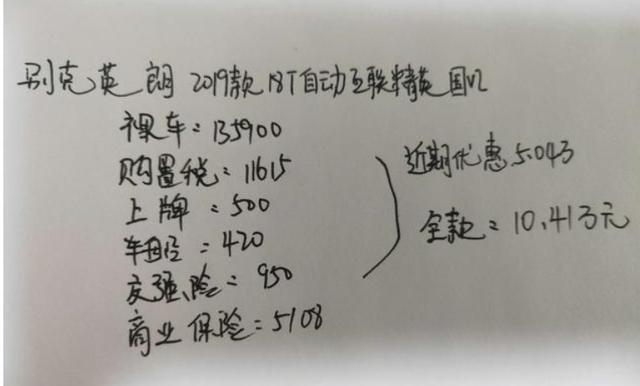 别克英朗 2019款 18T自动互联精英 国VI
裸车:135900
购置税:11615
上牌:500
车船:420
交强险:950
商业保险:5108
近期优惠5.04万
全款:10.41万元